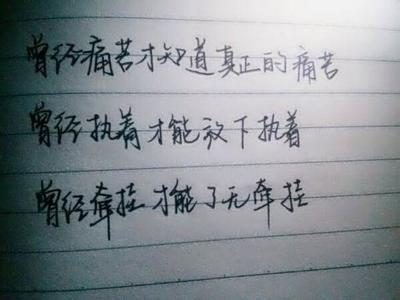 曾经痛苦才知道真正的痛苦
曾经执着才能放下执着
曾经牵挂才能了无牵挂